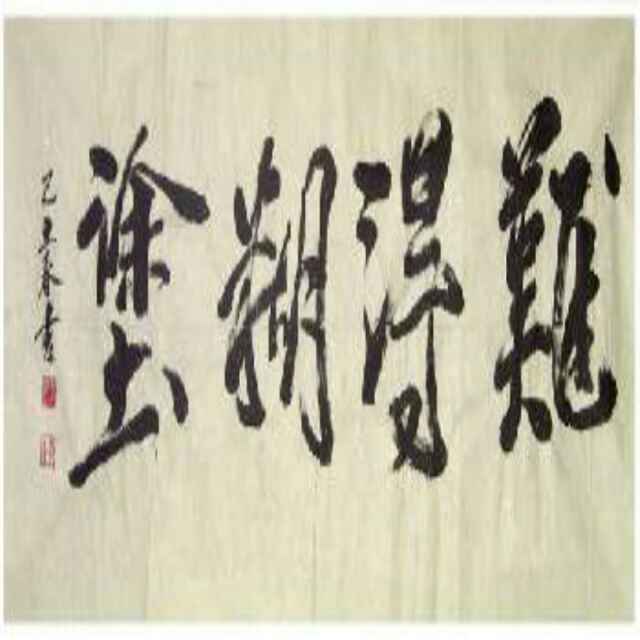 難得糊塗
己丑春書